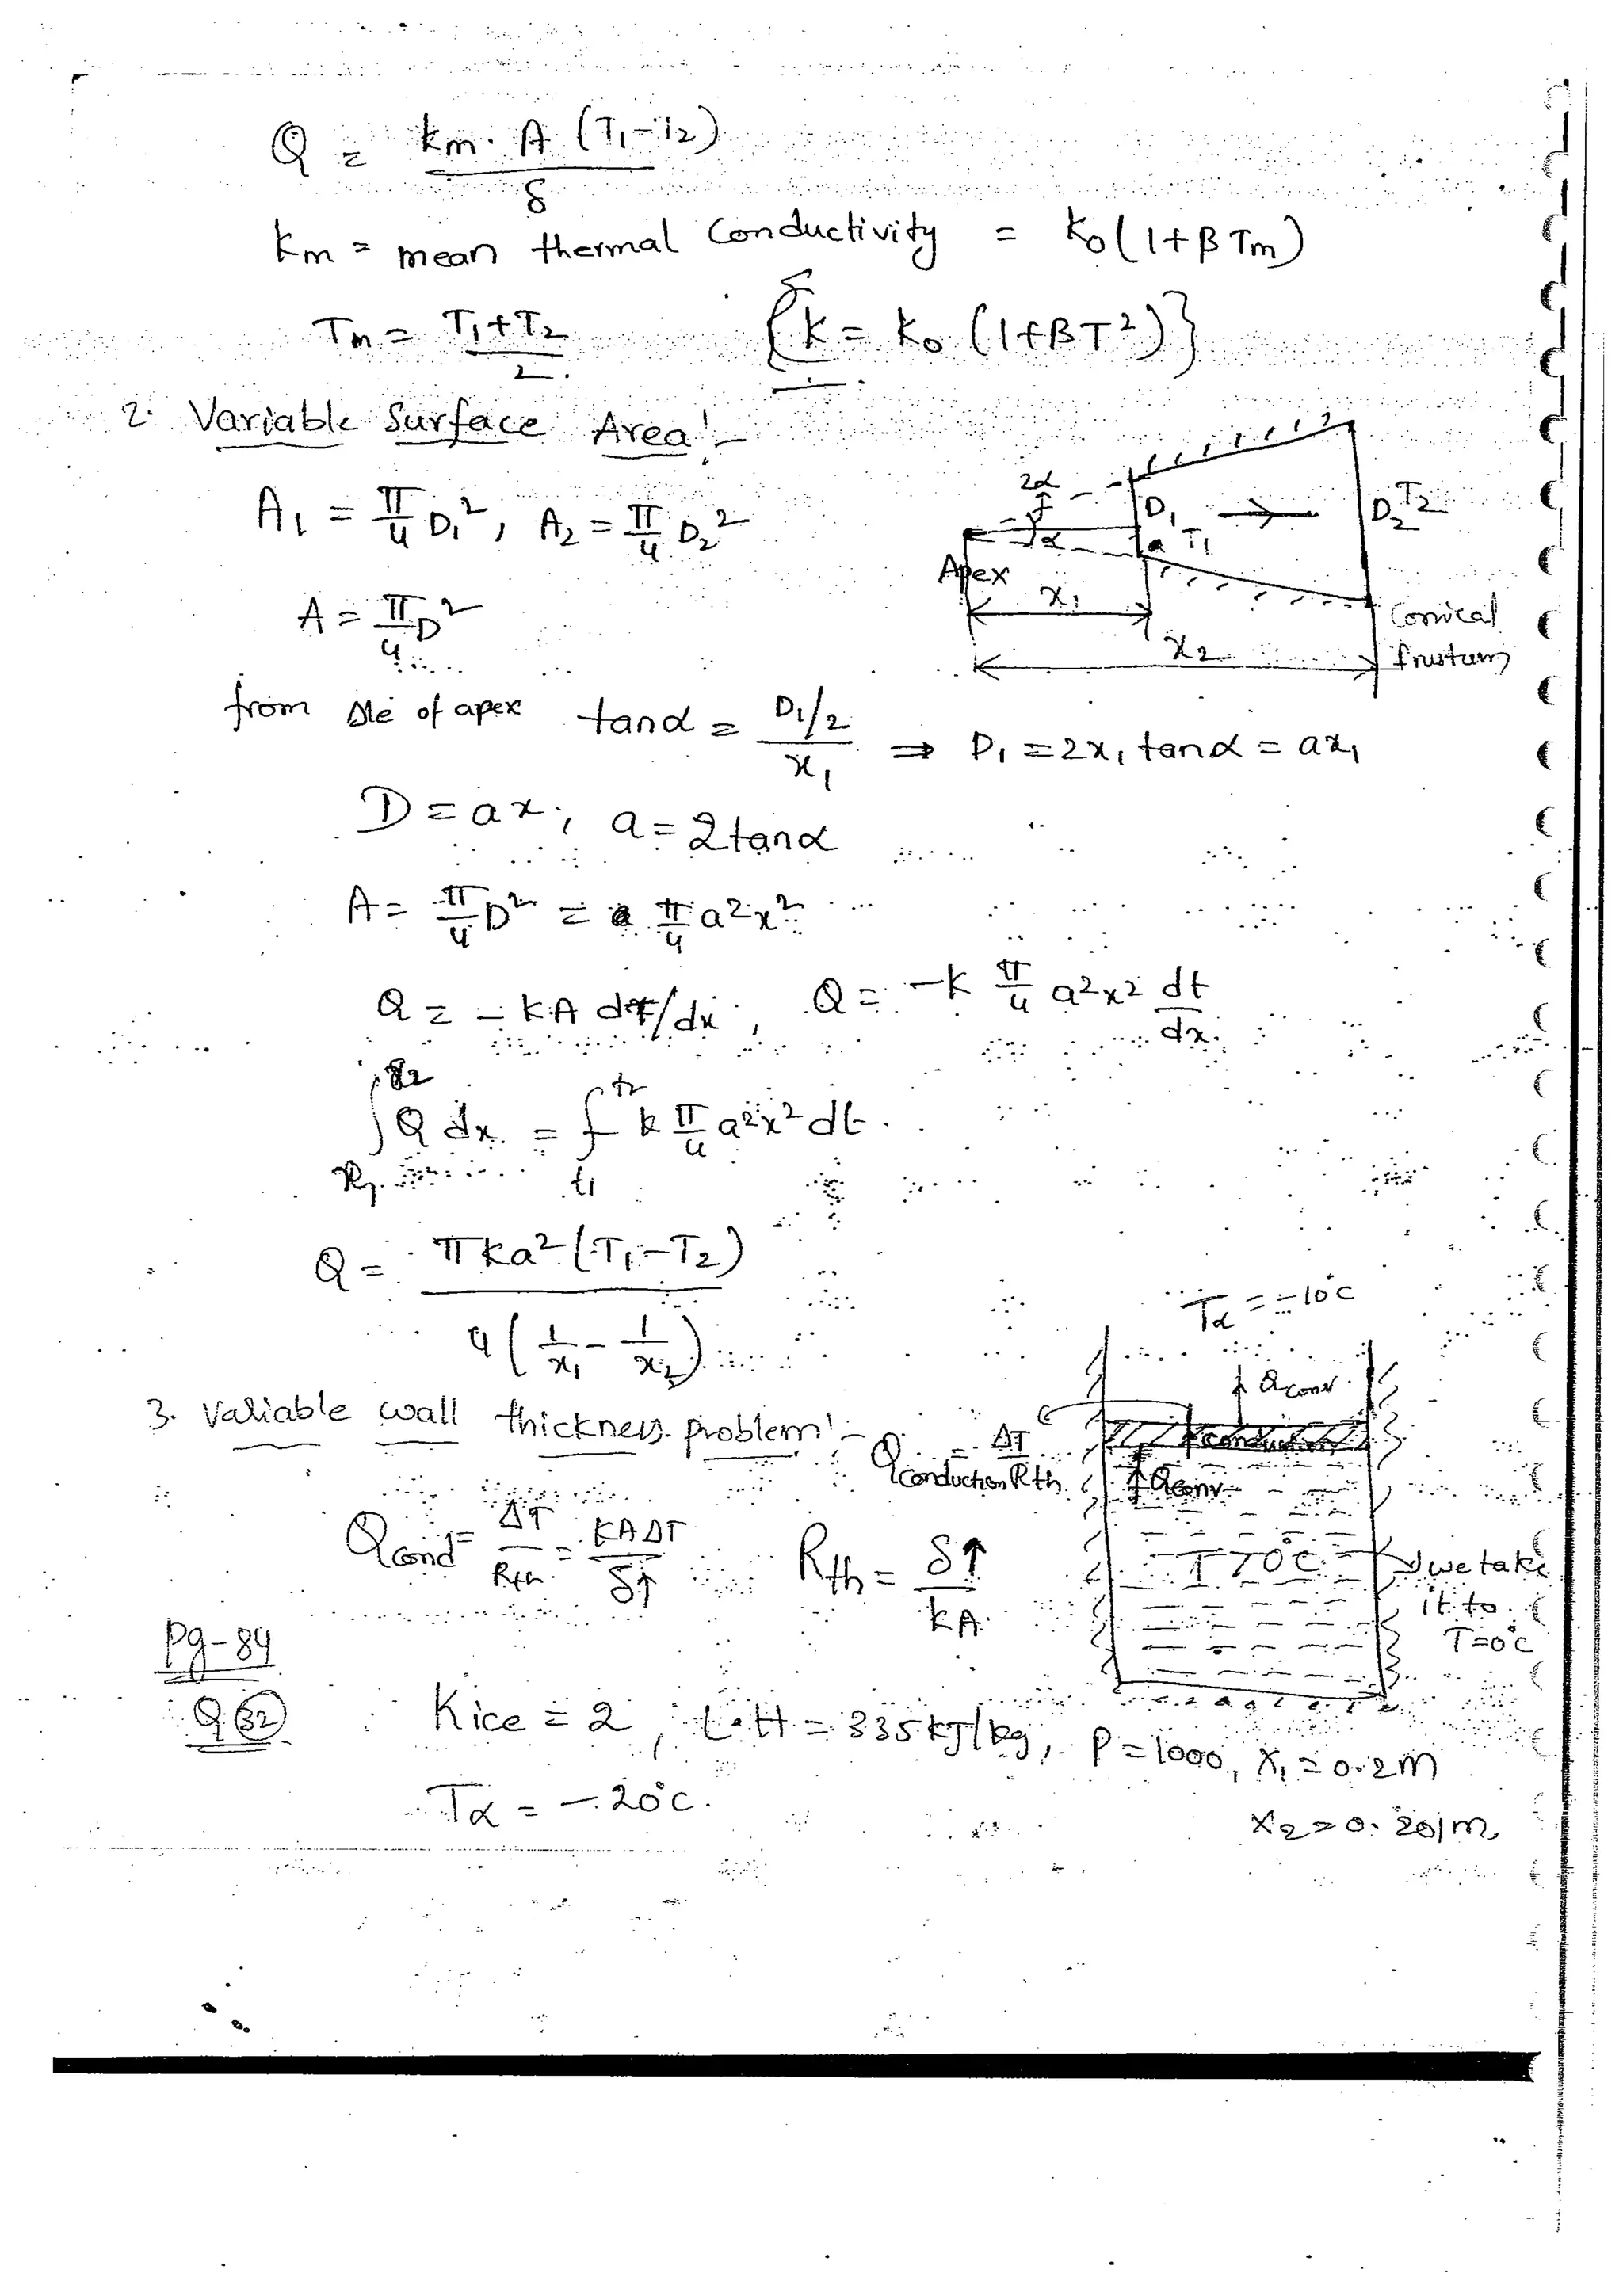 Q = km. A (T1-T2)
δ
km = mean thermal Conductivity = k0(1+βTm)
Tm = T1+T2
2
{k = k0 (1+βT²)}
2. Variable Surface Area:-
A1 = π/4 D1², A2 = π/4 D2²
A = π/4 D²
2α
D1
D2 T2
α
T1
Apex
x1
x2
Conical
frustum
from Δle of apex tanα = D1/2 / x1 ⇒ D1 = 2x1 tanα = ax1
D = ax, a = 2tanα
A = π/4 D² = π/4 a²x²
Q = -KA dT/dx, Q = -K π/4 a²x² dt/dx
∫x1^x2 Q dx = ∫t1^t2 k π/4 a²x² dt
Q = πka²(T1-T2)
4(1/x1 - 1/x2)
3. Variable wall thickness problem:-
Tα = -10°C
Qconv
Qconduction = ΔT/Rth
conduction
Qconv
T>0°C
we take
it to
T=0°C
Qcond = ΔT/Rth = KAΔT/δ↑
Rth = δ↑/kA
Pg-84
Q 32
Kice = 2, L.H = 335 kJ/kg, ρ = 1000, x1 = 0.2m
Tα = -20°C.
x2 = 0.201m,